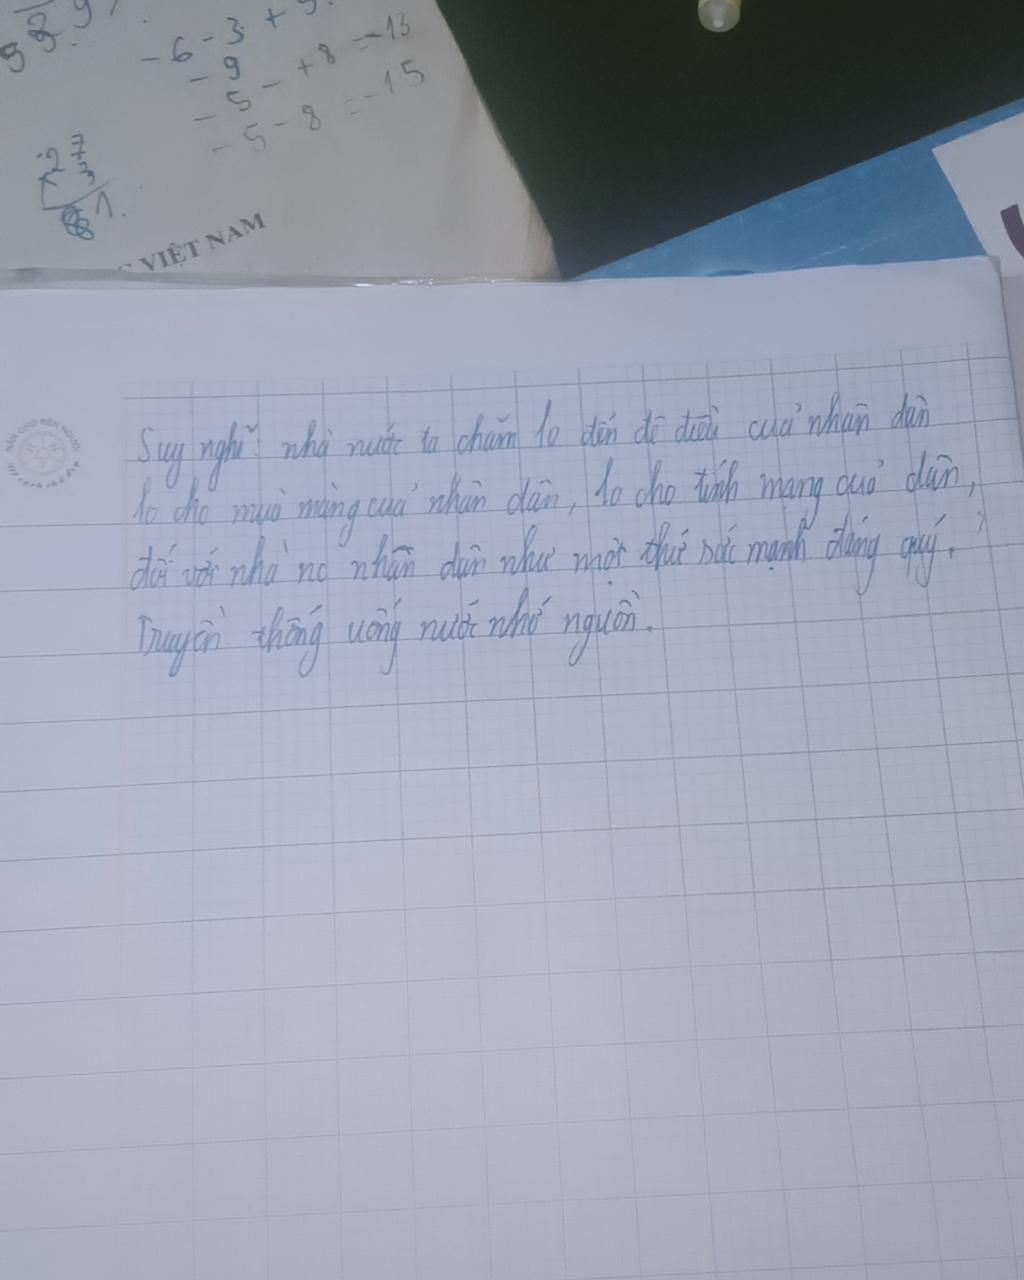 -6-3+
-9
-5-+8=-13
-5-8=-15
27
3
81.
VIỆT NAM
NÂN CHỮ RÈN NGƯỜI
Suy nghĩ: nhà nước ta chăm lo đến đê điều của nhân dân
lo cho mùa màng của nhân dân, lo cho tính mạng của dân,
đối với nhà nc nhân dân như một thứ sức mạnh đáng quý.
Truyền thống uống nước nhớ nguồn.